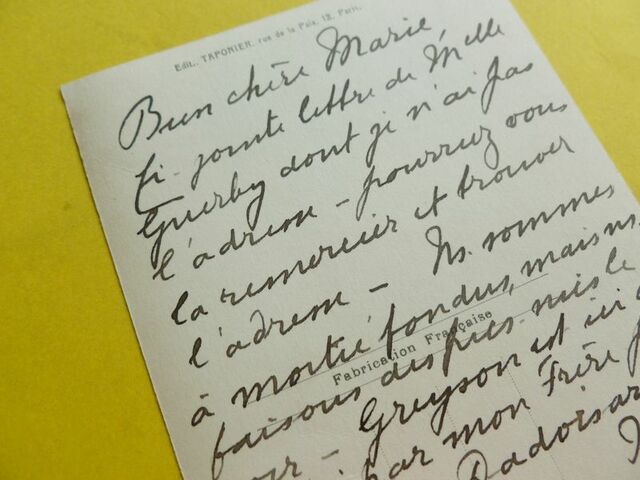 Edit. TAPONIER, rue de la Paix, 12, Paris.
Bien chère Marie,
Ci-jointe lettre de Melle
Guerby dont je n'ai pas
l'adresse - pourriez vous
la remercier et trouver
l'adresse - Ns. sommes
à moitié fondus, mais ns.
Fabrication Française
faisons des le
- Greyson est ici
par mon Frère